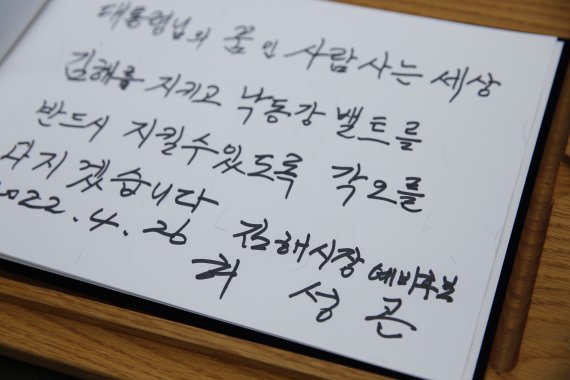 대통령님의 꿈인 사람사는 세상
김해를 지키고 낙동강 밸트를
반드시 지킬수있도록 각오를
다지겠습니다
2022. 4. 26 김해시장 예비후보
허 성 곤